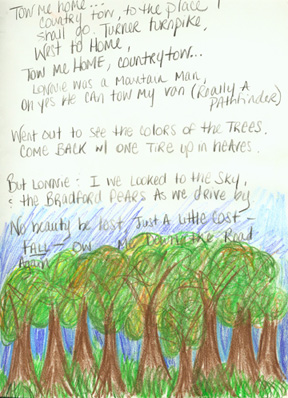 Tow me home...
Country tow, to the place I
shall go. Turner turnpike,
West to Home,
Tow me Home, country tow...
Lonnie was a Mountain Man,
Oh yes He can tow my van (Really A
Pathfinder)
Went out to see the colors of the Trees.
Come Back w/ one Tire up in heaves.
But Lonnie & I we looked to the sky,
& the Bradford Pears As we drive by
No beauty be lost, Just A little cost -
FALL - ON Me Down the Road
Again